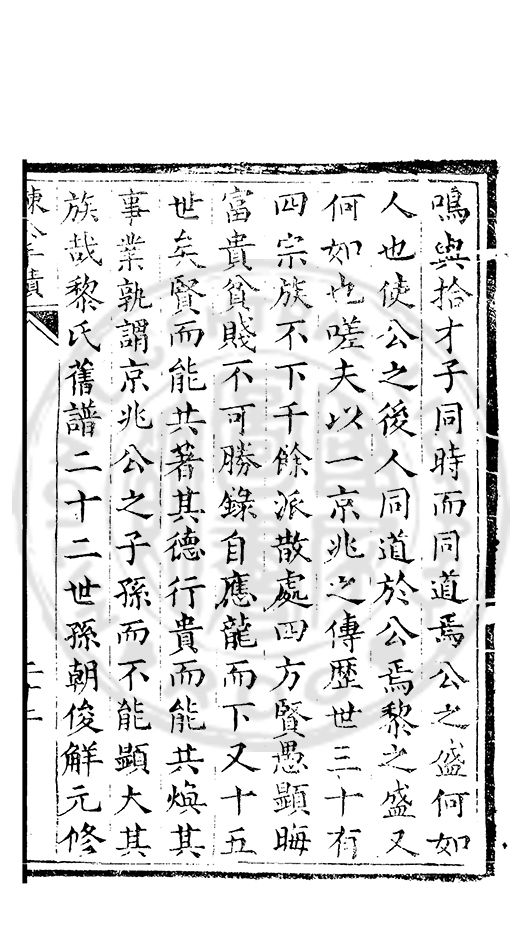 鳴與拾才子同時而同道焉公之盛何如
人也使公之後人同道於公焉黎之盛又
何如也嗟夫以一京兆之傳歷世三十有
四宗族不下千餘派散處四方賢愚顯晦
富貴貧賤不可勝錄自應龍而下又十五
世矣賢而能共著其德行貴而能共煥其
事業孰謂京兆公之子孫而不能顯大其
族哉黎氏舊譜二十二世孫朝俊解元修